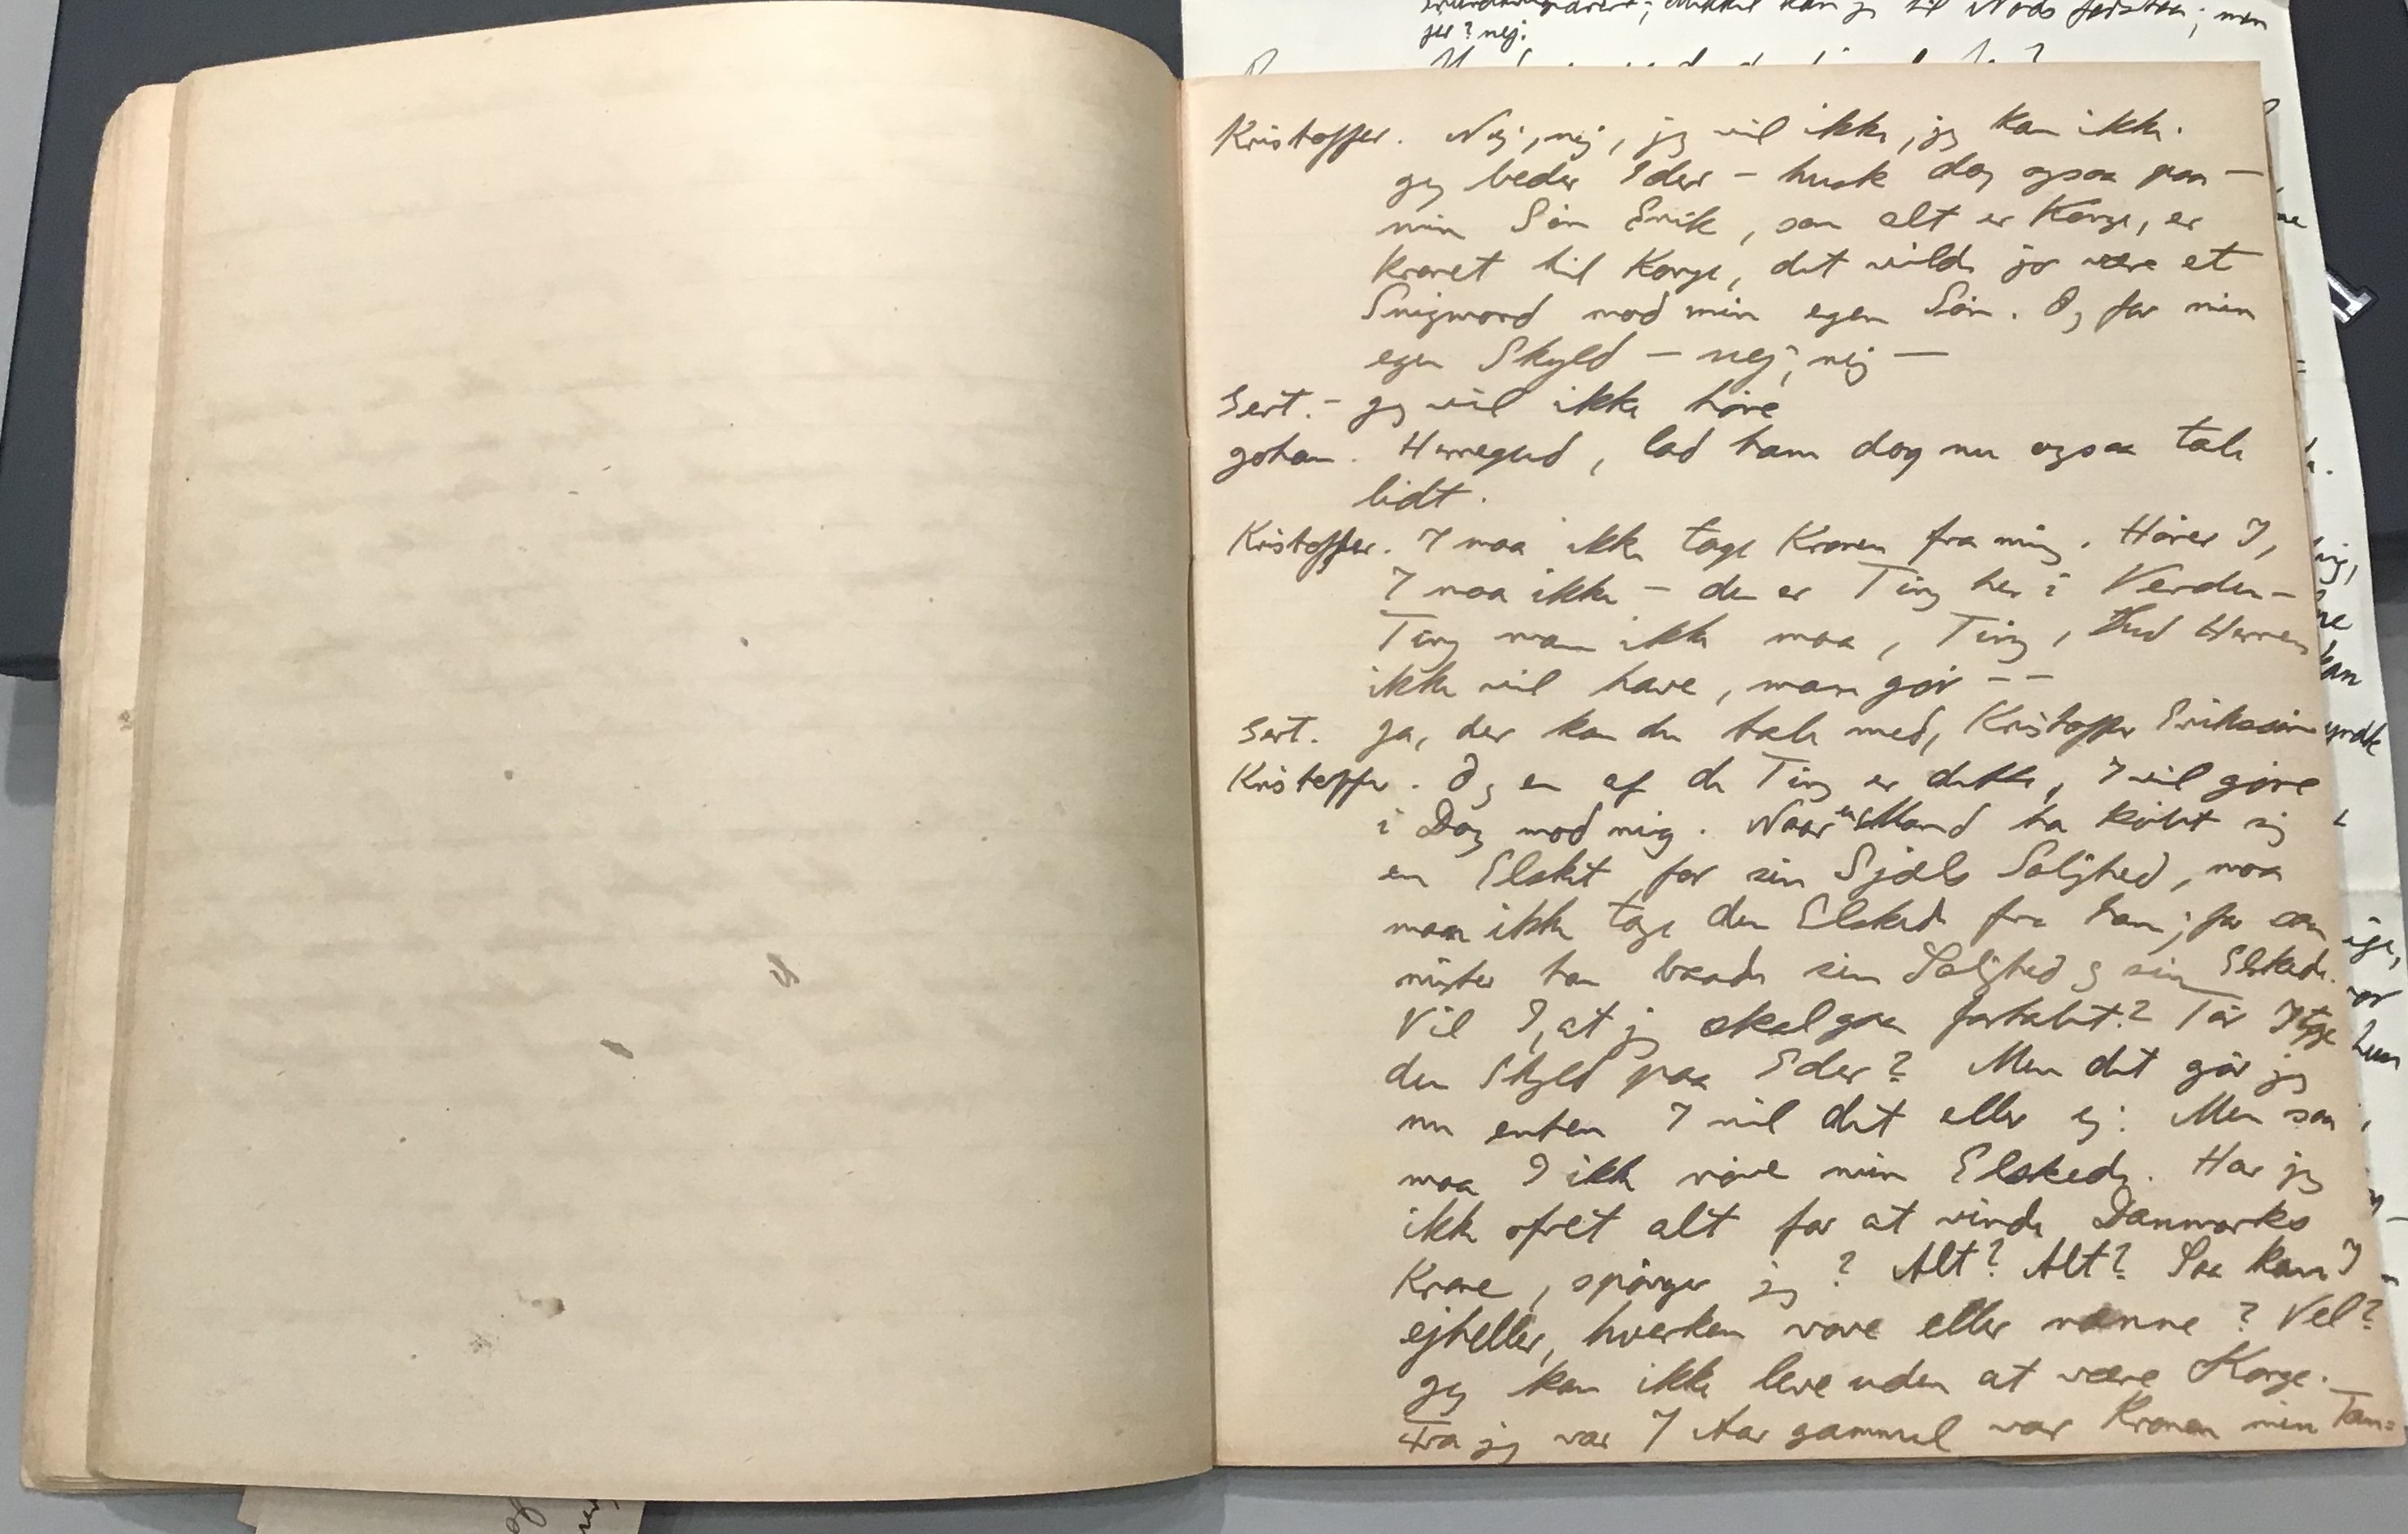 jer? nej.
Kristoffer. Nej, nej, jeg vil ikke, jeg kan ikke.
Jeg beder Eder – husk dog ogsaa paa –
min Sön Erik, som alt er Konge, er
kronet til Konge, det vilde jo være et
Snigmord mod min egen Sön. Og for min
egen Skyld – nej, nej –
Gert. – Jeg vil ikke höre
Johan. Herregud, lad ham dog nu ogsaa tale
lidt.
Kristoffer. I maa ikke tage Kronen fra mig. Hörer I,
I maa ikke – der er Ting her i Verden –
Ting man ikke maa, Ting, Gud Herren
ikke vil have, man gör – –
Gert. Ja, der kan du tale med, Kristoffer Eriksön
Kristoffer. Og en af de Ting er dette, I vil göre
i Dag mod mig. Naar en Mand ha köbt sig
en Elsket for sin Sjæls Salighed, maa
man ikke tage den Elskede fra ham; for saa
mister han baade sin Salighed og sin Elskede.
Vil I, at jeg skal gaa fortabt? Tör I tage
den Skyld paa Eder? Men det gör jeg
nu enten I vil det eller ej: Men saa
maa I ikke röve min Elskede. Har jeg
ikke ofret alt for at vinde Danmarks
Krone, spörger jeg? Alt? Alt? Saa kan I
ejheller, hverken vove eller nænne? Vel?
Jeg kan ikke leve uden at være Konge.
Fra jeg var 7 Aar gammel var Kronen min Tan=